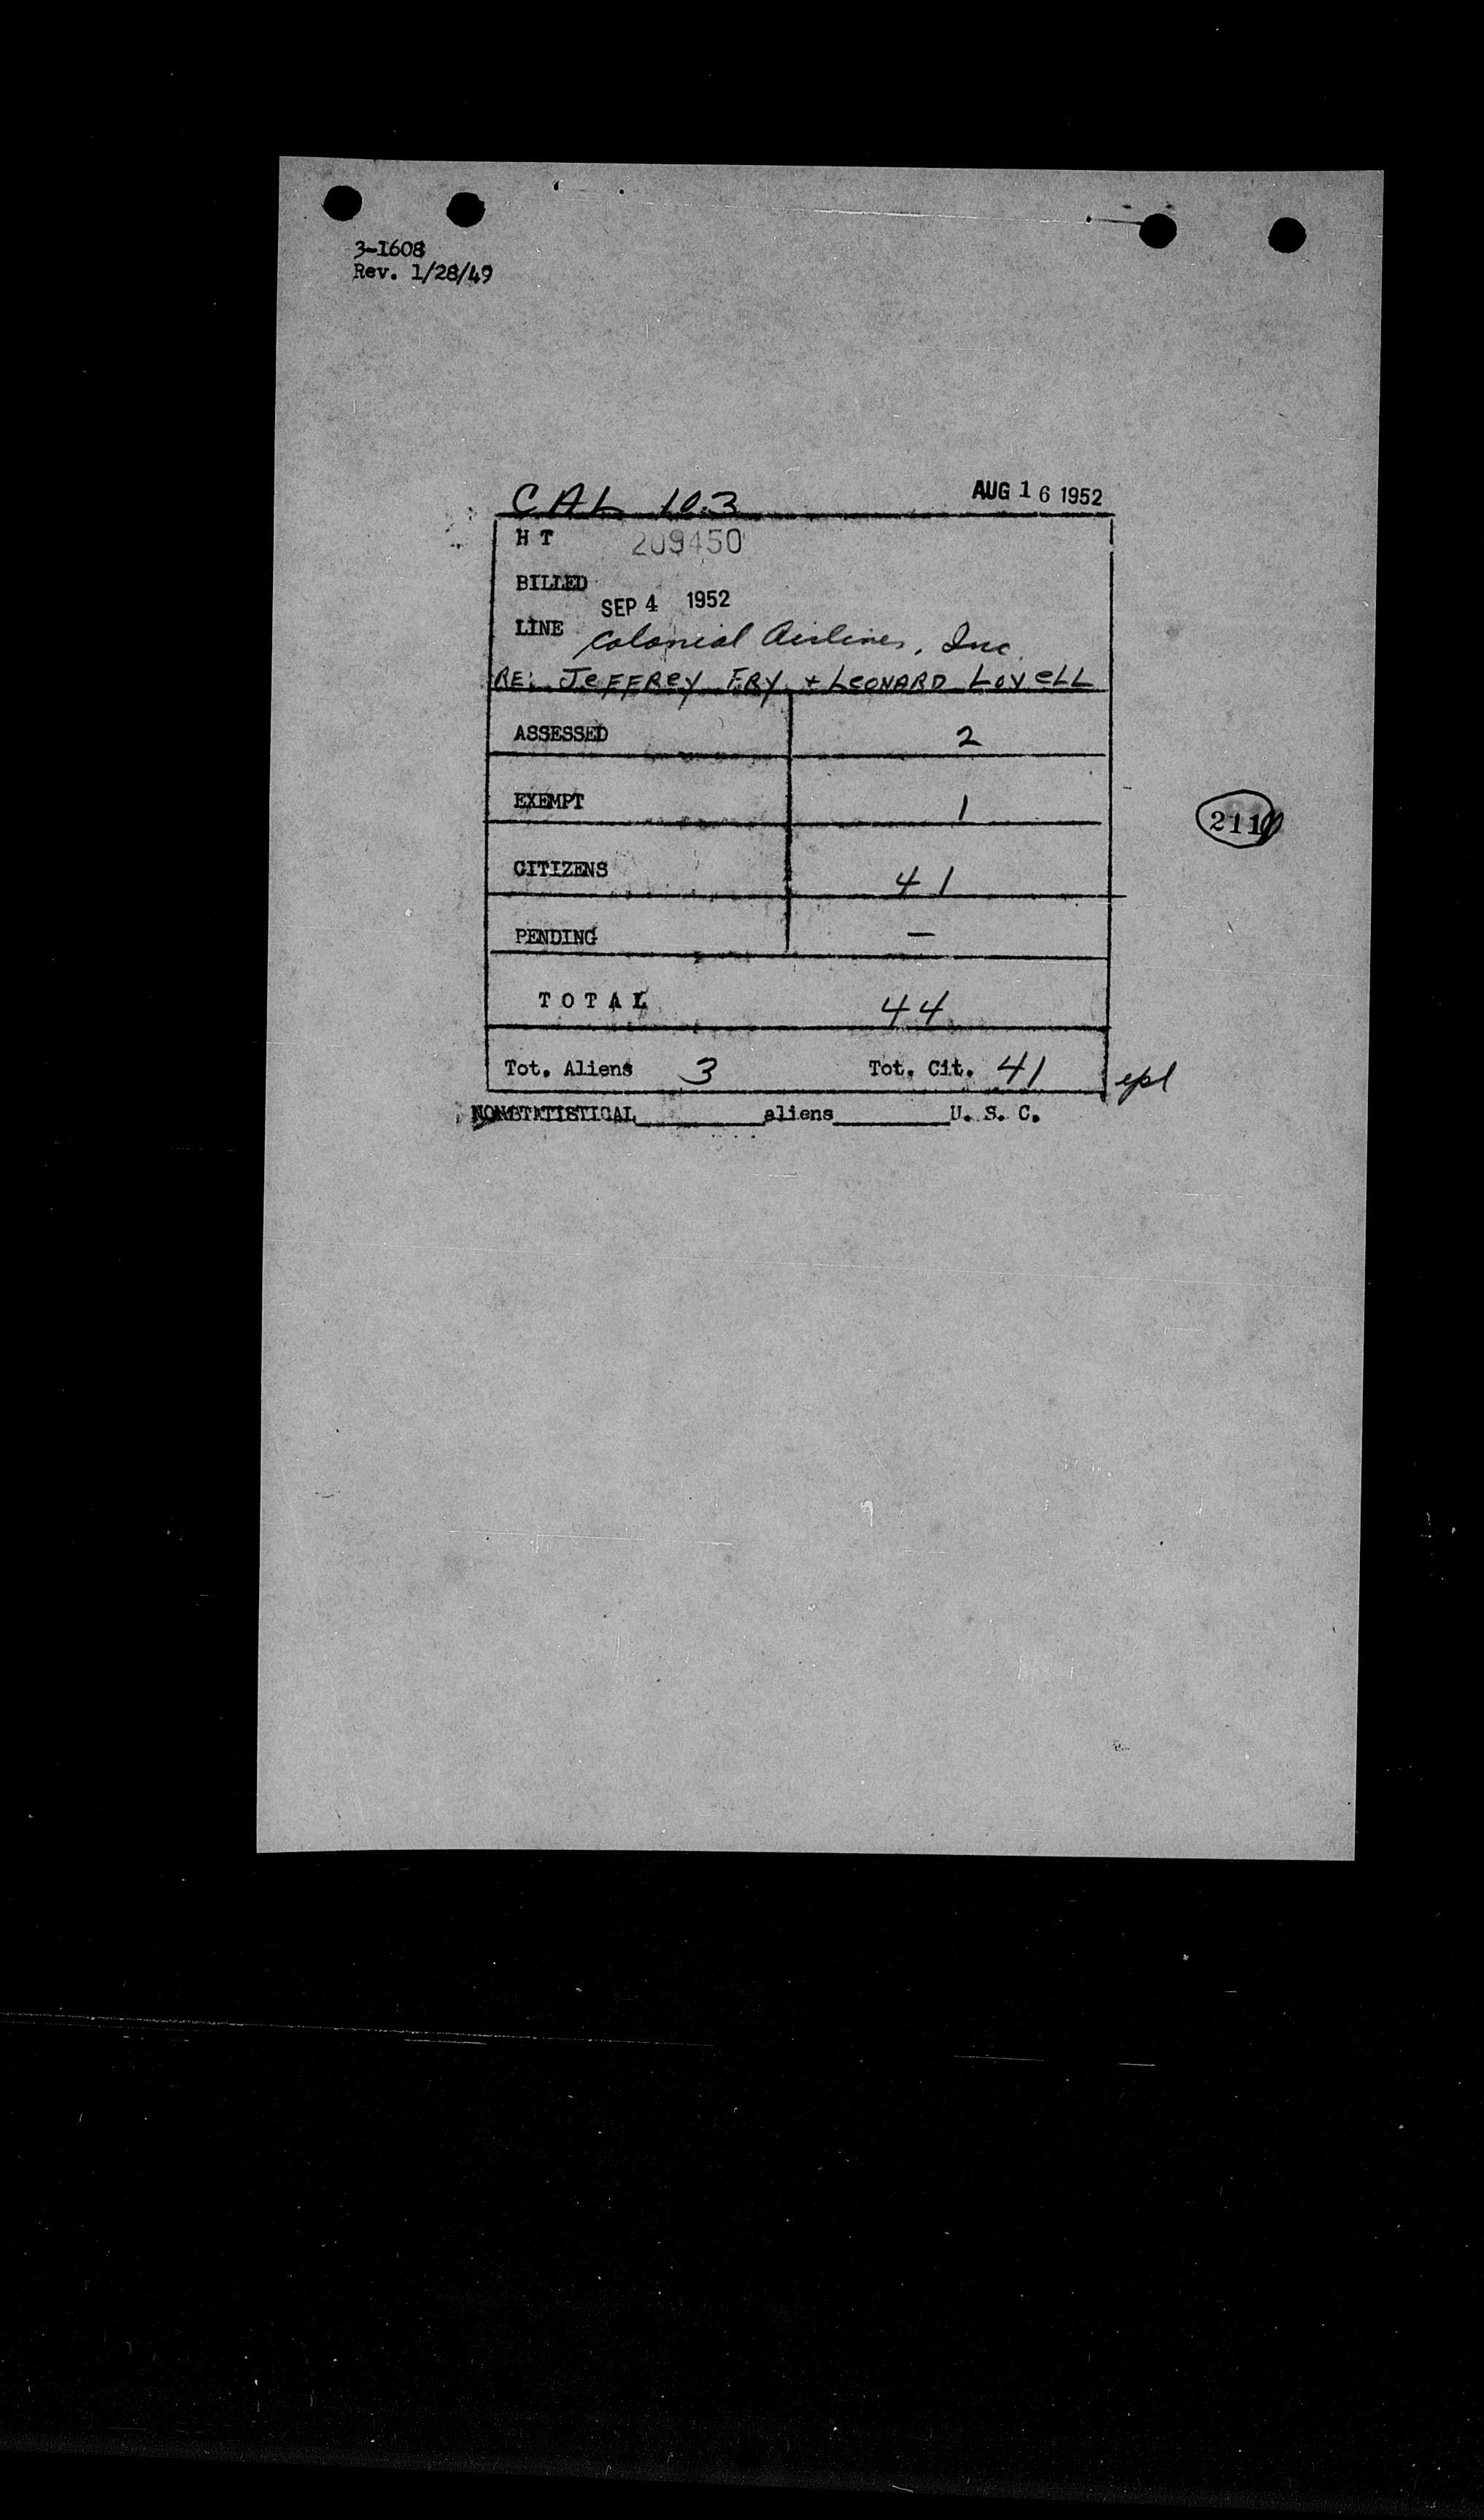 3-1608
Rev. 1/28/49
CAL 103 AUG 16 1952
H T 209450
BILLED
SEP 4 1952
LINE Colonial Airlines, Inc.
RE: JeFFReY FRY + LeONARD LoveLL
ASSESSED 2
EXEMPT 1
211
CITIZENS 41
PENDING —
T O T A L 44
Tot. Aliens 3 Tot. Cit. 41 epl
NONSTATISTICAL________aliens________U. S. C.